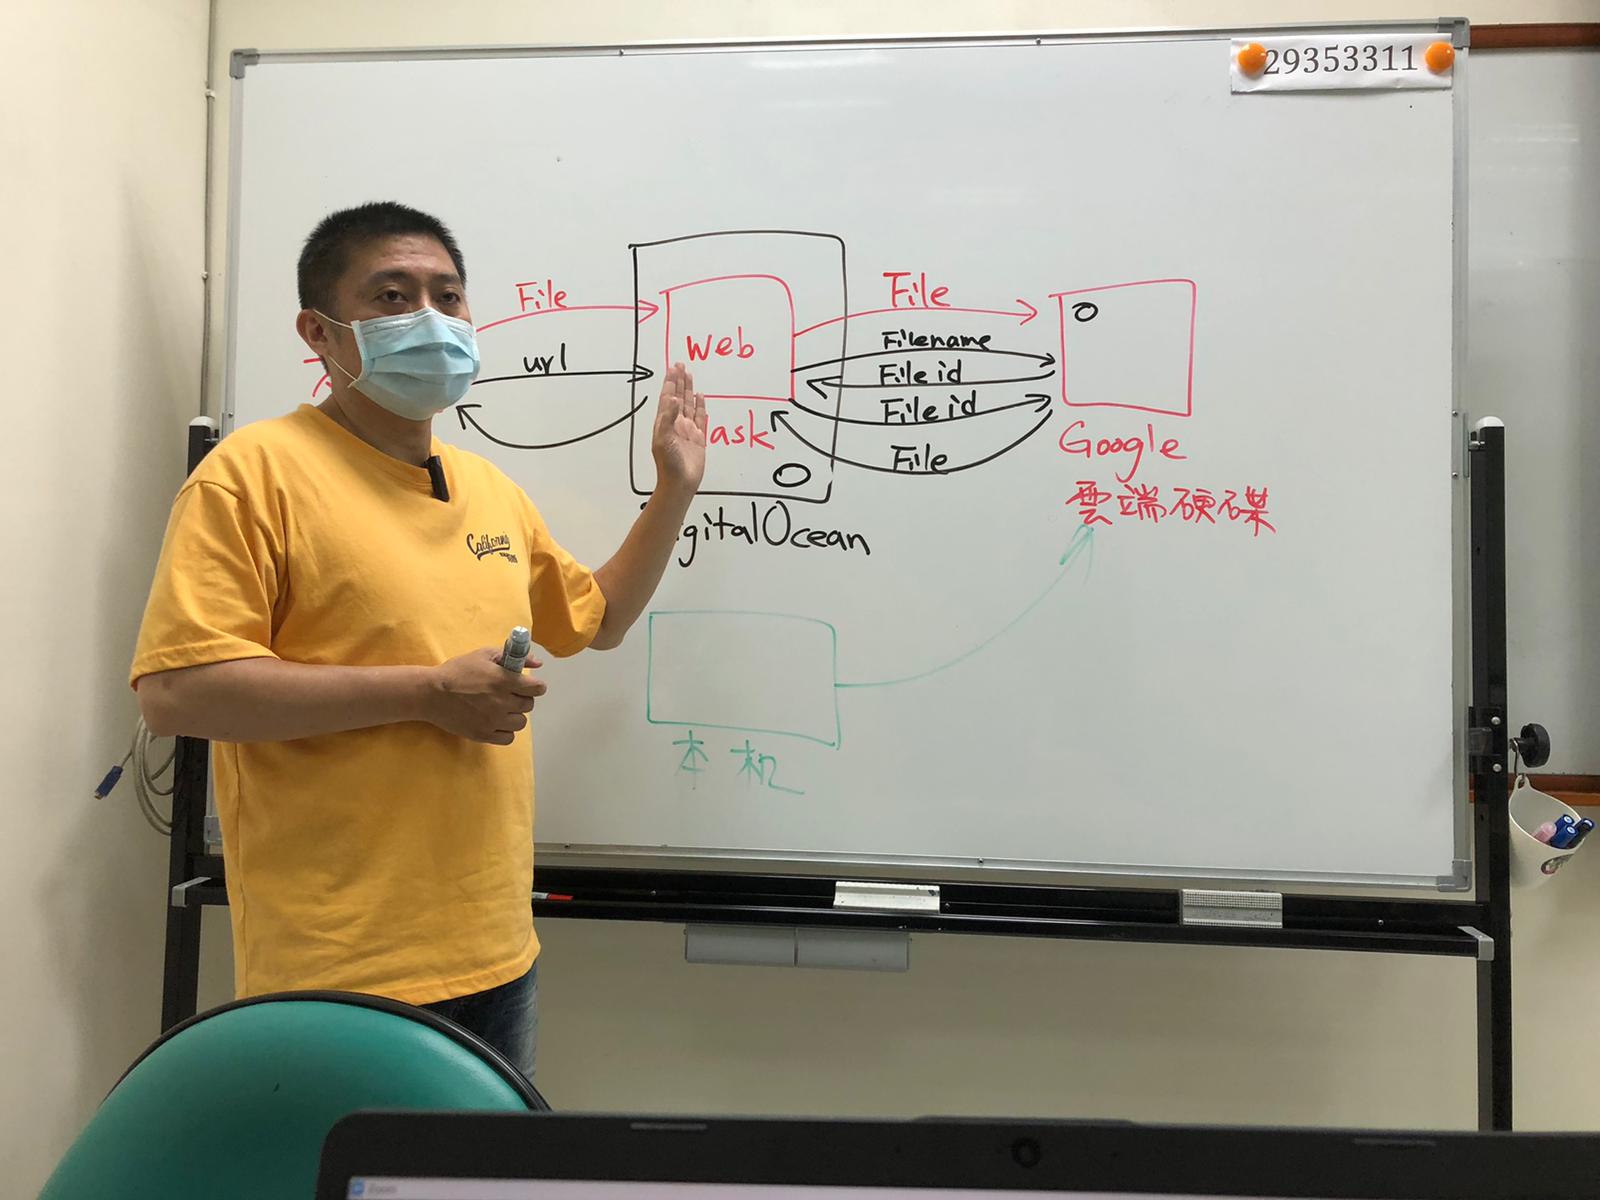 29353311
File
url
web
ask
igitalOcean
File
Filename
File id
File id
File
Google
雲端硬碟
本机
California